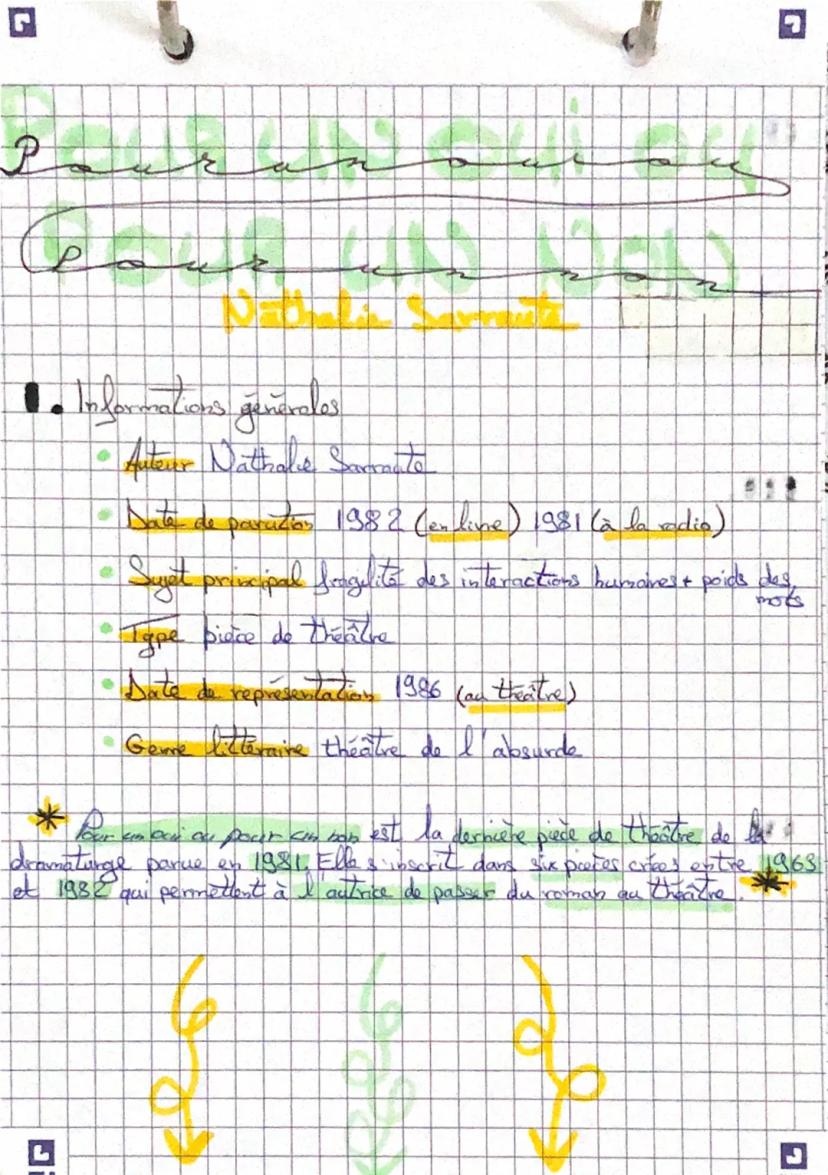 Pour un oui ou
Pour un non
Nathalie Sarraute
I. Informations générales
Auteur Nathalie Sarraute
Date de parution 1982 (en livre) 1981 (à la radio)
Sujet principal fragilité des interactions humaines + poids des
mots
Type pièce de théâtre
Date de représentation 1986 (au théâtre)
Genre littéraire théâtre de l'absurde
* Pour un oui ou pour un non est la dernière pièce de théâtre de la
dramaturge parue en 1981. Elle s'inscrit dans six pièces crées entre 1963
et 1982 qui permettent à l'autrice de passer du roman au théâtre. *